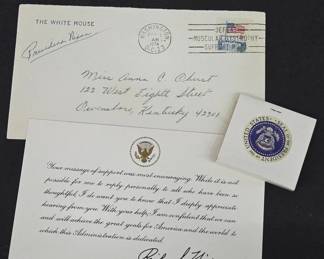 THE WHITE HOUSE
WASHINGTON
AM
D.C.
MUSCULAR DYSTROPHY
SUPPORT
Miss Anna C. Ohurst
122 West Eighth Street
Owensboro, Kentucky 42301
SEAL OF THE PRESIDENT
UNITED STATES
Your message of support was most encouraging. While it is not
possible for me to reply personally to all who have been so
thoughtful, I do want you to know that I deeply appreciate
hearing from you. With your help, I am confident that we can
and will achieve the great goals for America and the world to
which this Administration is dedicated.